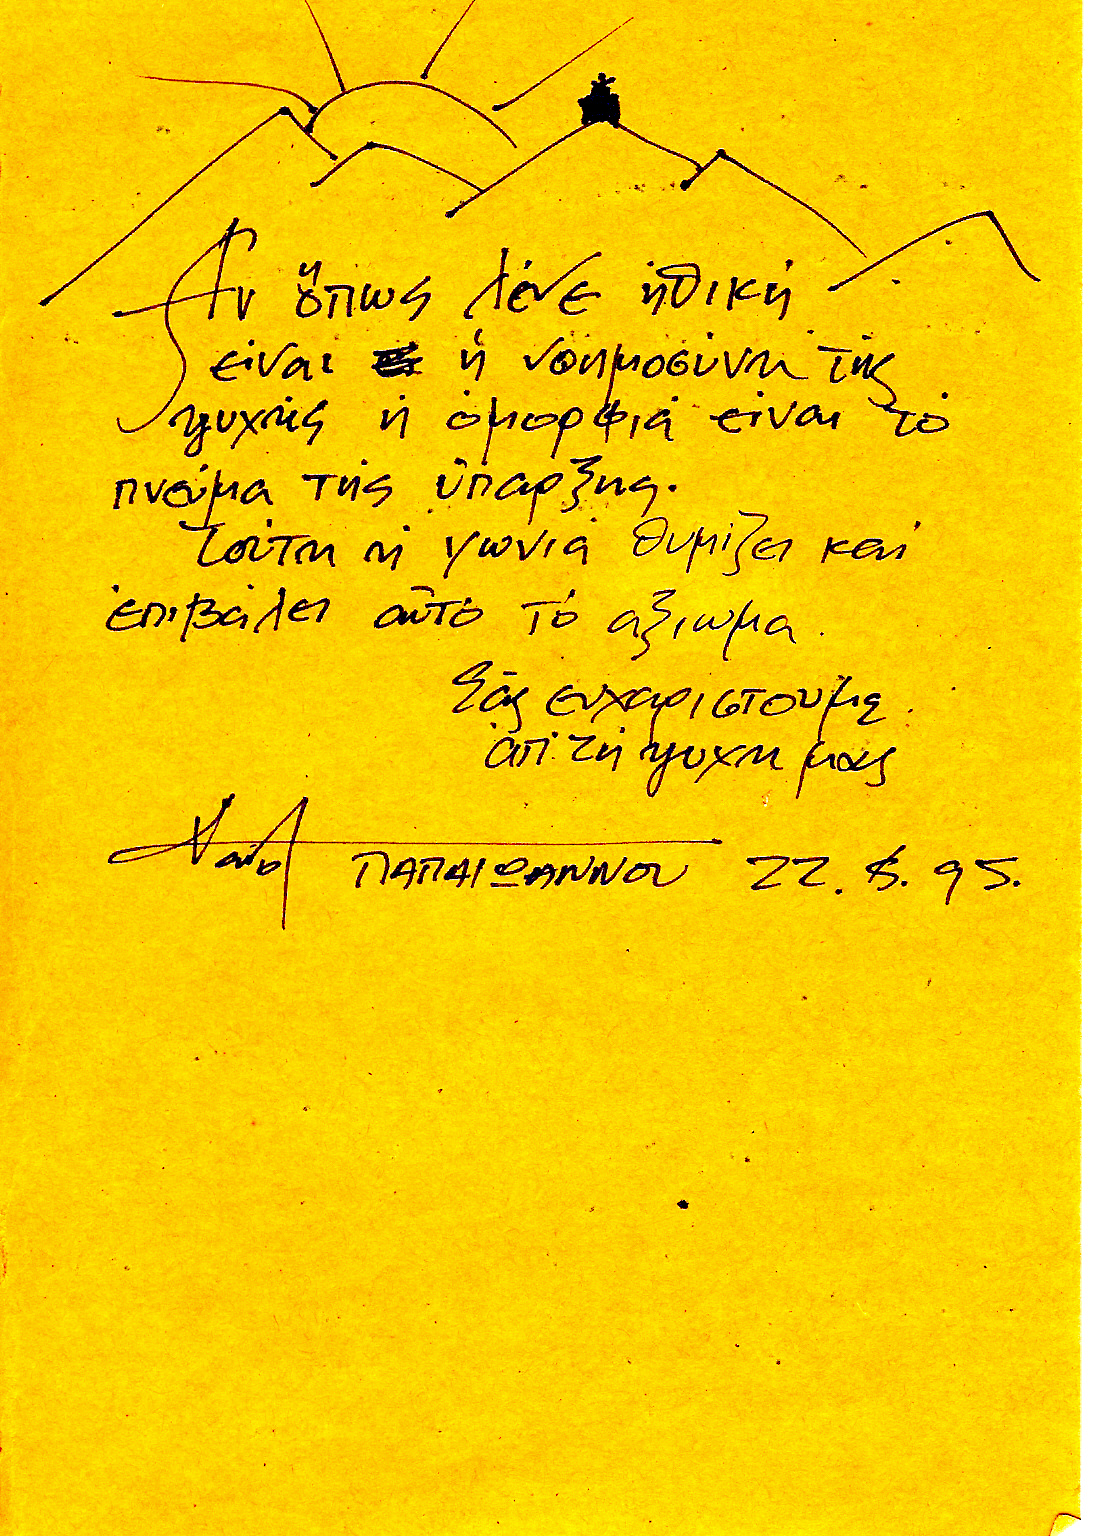 Ἄν ὅπως λένε ἠθική
εἶναι ἡ νοημοσύνη τῆς
ψυχῆς ἡ ὀμορφιά εἶναι τὸ
πνεύμα τῆς ὕπαρξης.
Τούτη ἡ γωνιά θυμίζει καί
ἐπιβάλει αὐτό τό αξιωμα.
Σᾶς ευχαριστουμε.
ἀπ' τή ψυχη μας
ΠΑΠΑΙΩΑΝΝΟΥ 22. 8. 95.